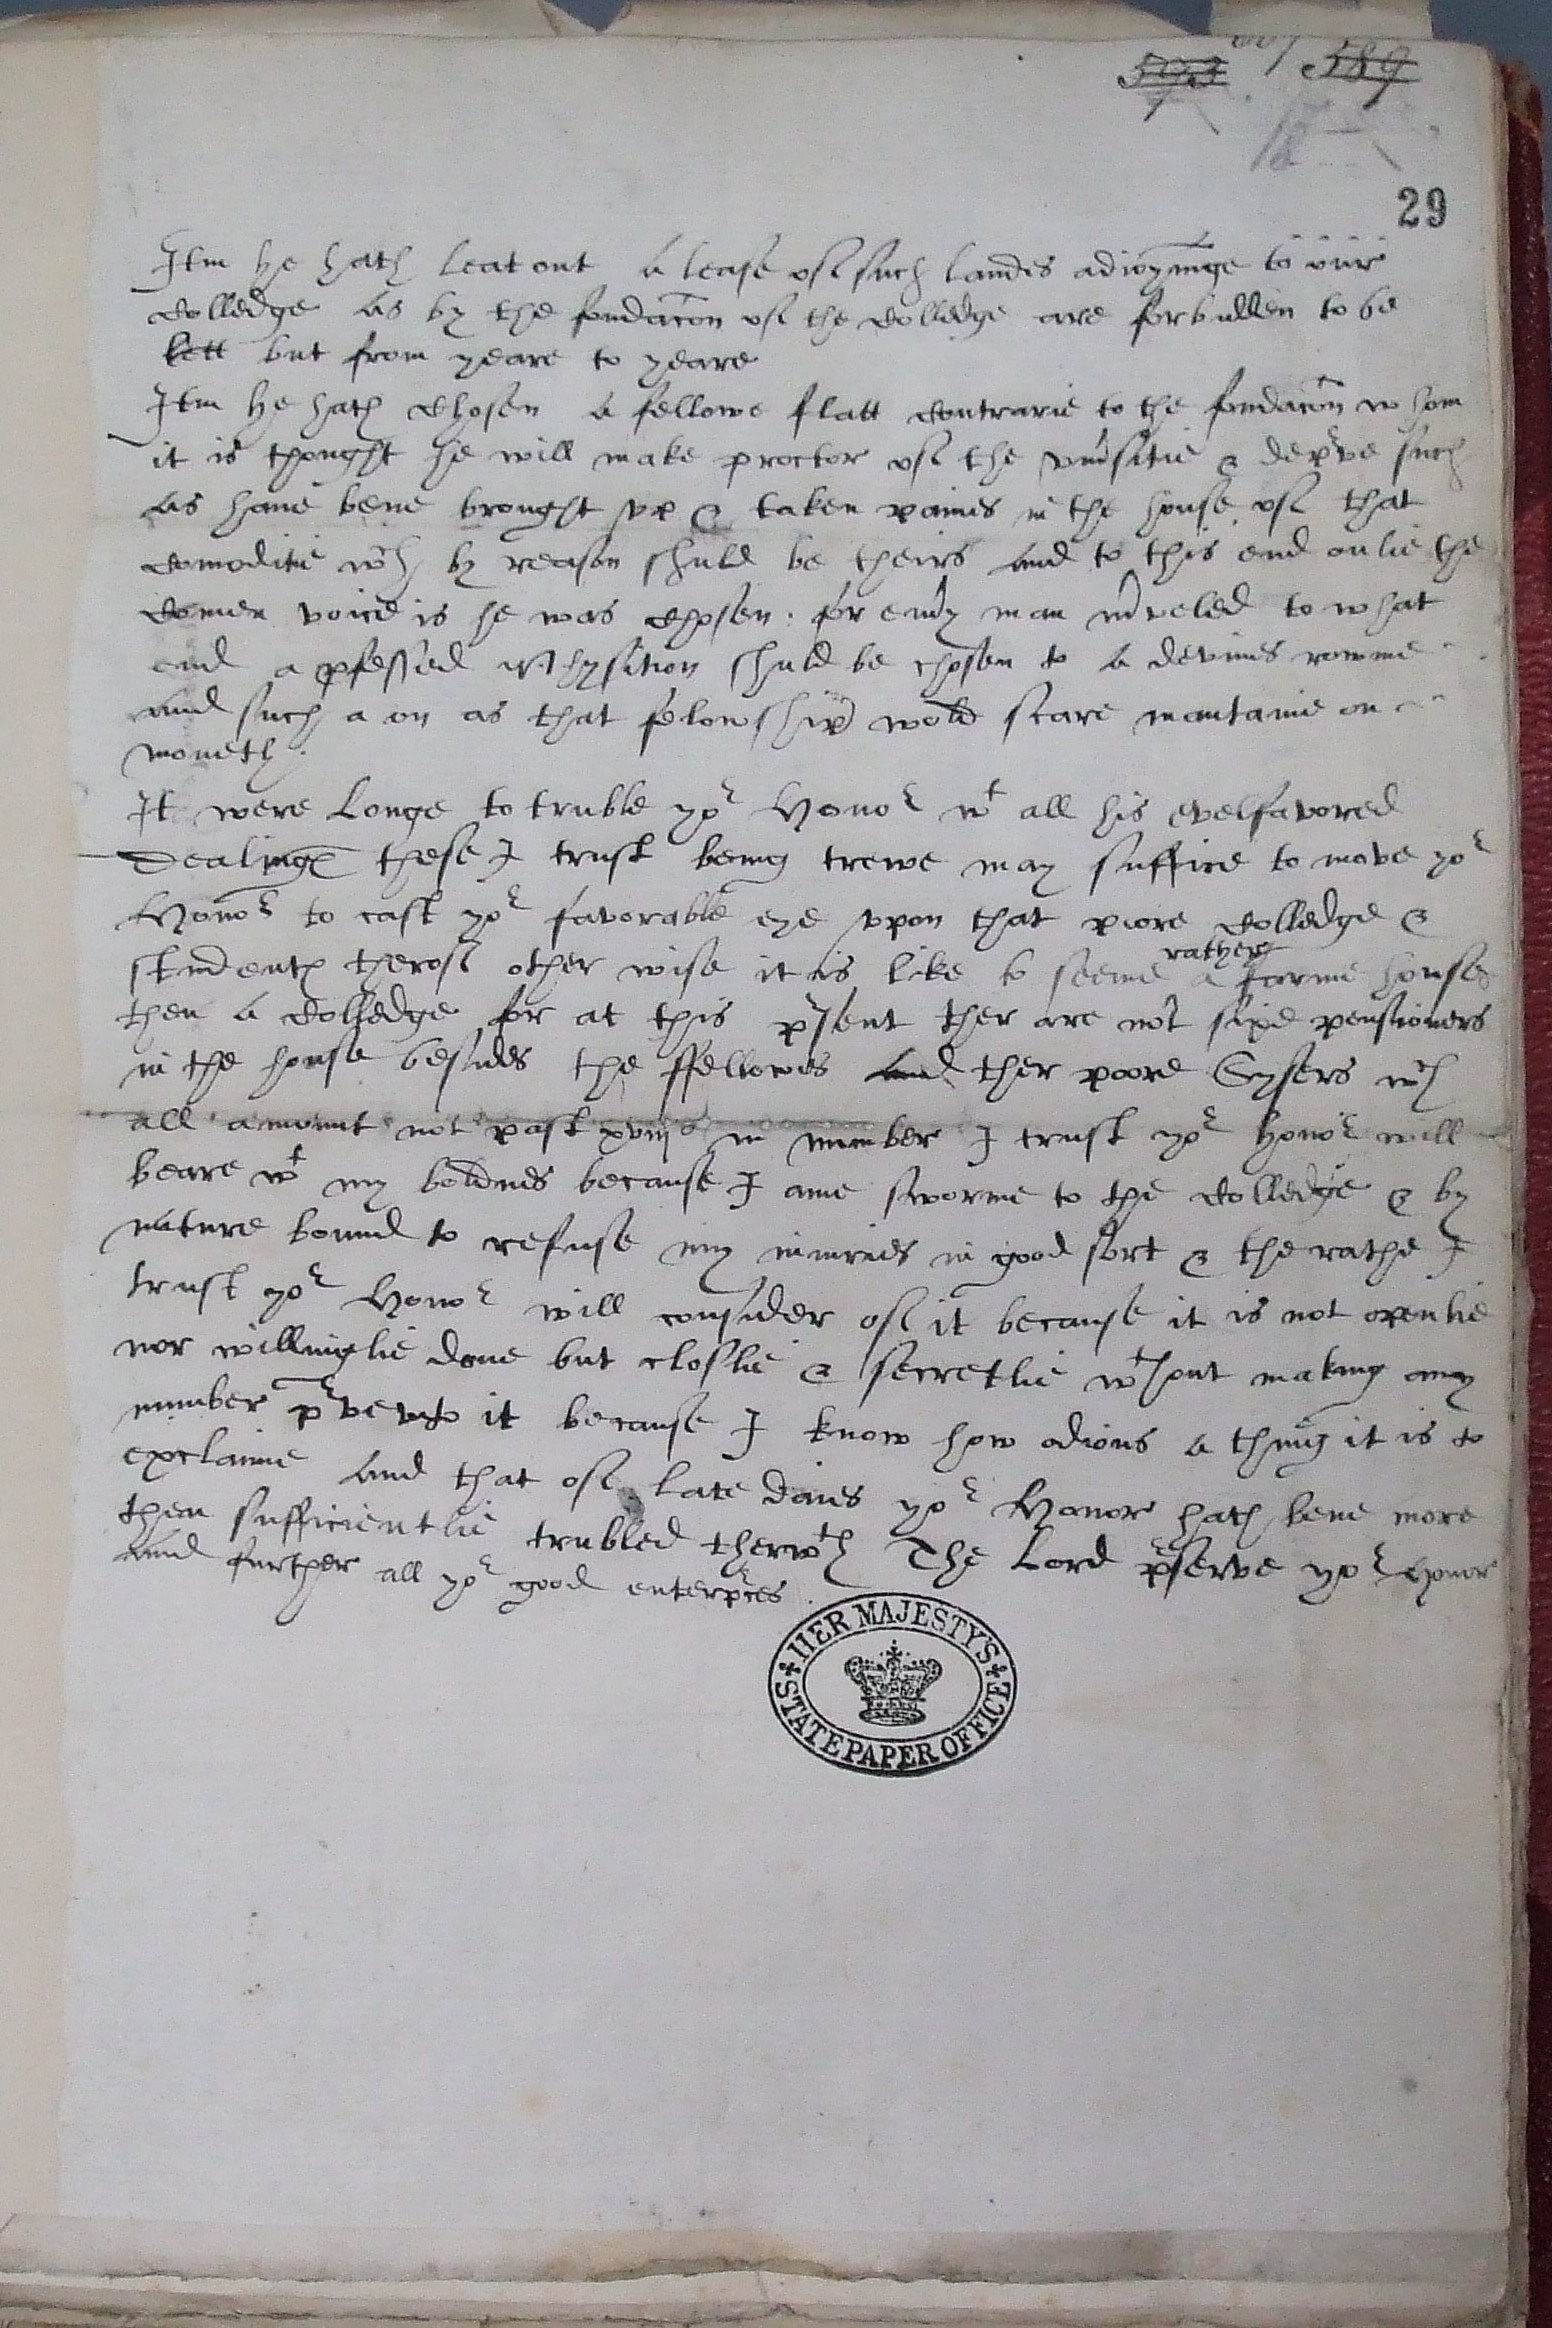 589
29
Itm he hath leat out a lease of such landes adioyninge to our
colledge as by the fondacon of the colledge are forbidden to be
lett but from yeare to yeare
Itm he hath chosen a fellowe flatt contrarie to the fondacon whom
it is thought he will make proctor of the vnisitie & deprve such
as haue bene brought vp & taken paines in the house of that
comoditie wch by reason shuld be theirs and to this end onlie the
comen voice is he was chosen. for euy man mveled to what
end a pfessed phisition shuld be chosen to a devines rowme
and such a on as that felowship wold scare mantaine on
moneth.
It were longe to truble yor Honor wt all his evelfavored
dealinges these I trust being trewe may suffice to move yor
Honor to cast yor favorable eye vpon that poore colledge &
students therof other wise it is like to seeme a rather farme house
then a colledge for at this psent ther are not sixe pensioners
in the house besides the ffellowes and ther poore Sysers wch
all amount not past xviij in number I trust yor honor will
beare wt my boldnes because I ame sworne to the colledge & by
nature bound to refuse my iniuries in good sort & the rathe I
trust yor Honor will consider of it because it is not openlie
nor willinglie done but closlie & secretlie wthout making any
number prve vnto it because I know how odious a thing it is to
exclaime and that of late daies yor Honor hath bene more
then sufficientlie trubled therwth The Lord pserve yor Honor
and further all yor good enterprces
HER MAJESTY'S
STATE PAPER OFFICE